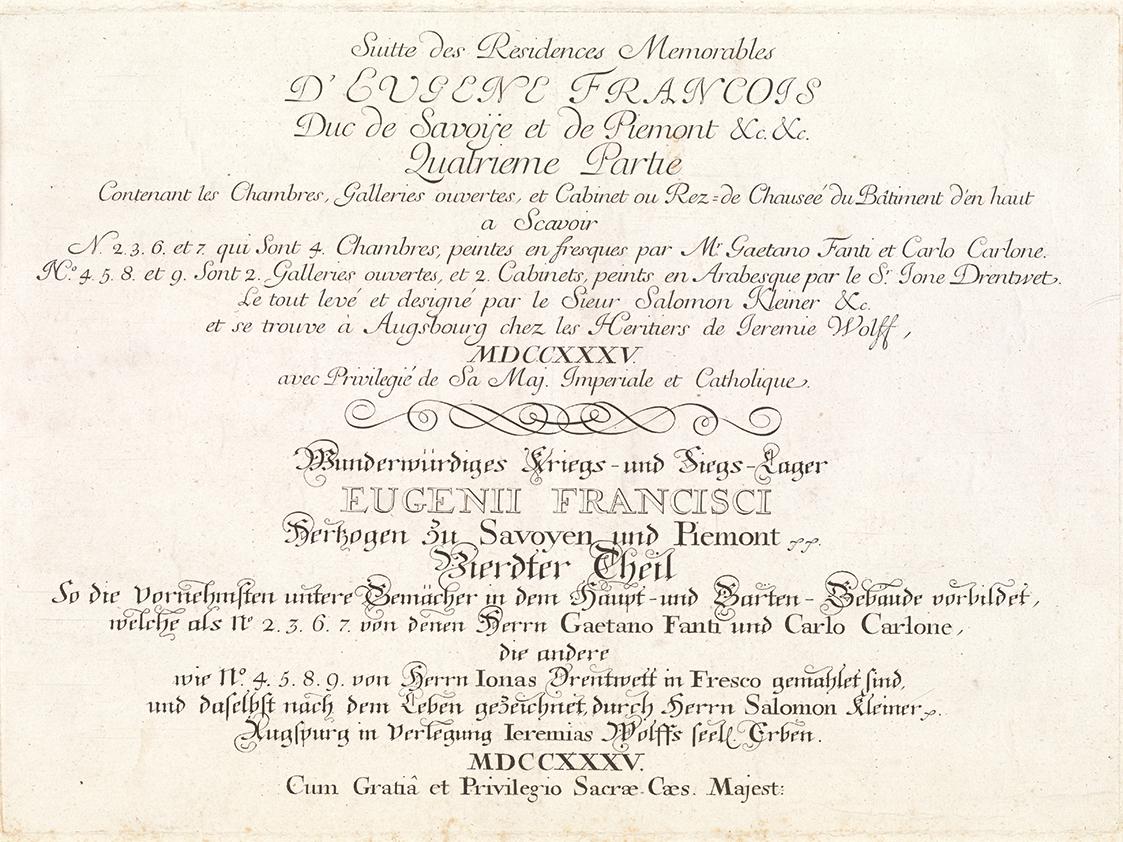 Suitte des Residences Memorables
D'EUGENE FRANCOIS
Duc de Savoije et de Piemont &c. &c.
Quatrieme Partie
Contenant les Chambres, Galleries ouvertes, et Cabinet ou Rez=de Chauseé du Bâtiment d'en haut
a Scavoir
N. 2 3. 6. et 7. qui Sont 4. Chambres, peintes en fresques par Mr. Gaetano Fanti et Carlo Carlone.
N.o 4. 5. 8. et 9. Sont 2. Galleries ouvertes, et 2. Cabinets, peints en Arabesque par le Sr. Ione Drentwet.
Le tout levé et designé par le Sieur Salomon Kleiner &c.
et se trouve à Augsbourg chez les Heritiers de Ieremie Wolff,
MDCCXXXV.
avec Privilegié de Sa Maj. Imperiale et Catholique.
Wunderwürdiges Kriegs-und Siegs-Lager
EUGENII FRANCISCI
Hertzogen zu Savoyen und Piemont
Vierdter Theil
So die vornehmsten untere Gemächer in dem Haupt-und Garten-Gebäude vorbildet,
welche als No 2. 3. 6. 7. von denen Herrn Gaetano Fanti und Carlo Carlone,
die andere
wie No. 4. 5. 8. 9. von Herrn Ionas Drentwett in Fresco gemahlet sind,
und daselbst nach dem Leben gezeichnet, durch Herrn Salomon Kleiner
Augspurg in Verlegung Ieremias Wolffs seel. Erben.
MDCCXXXV.
Cum Gratiâ et Privilegio Sacræ Cæs. Majest: